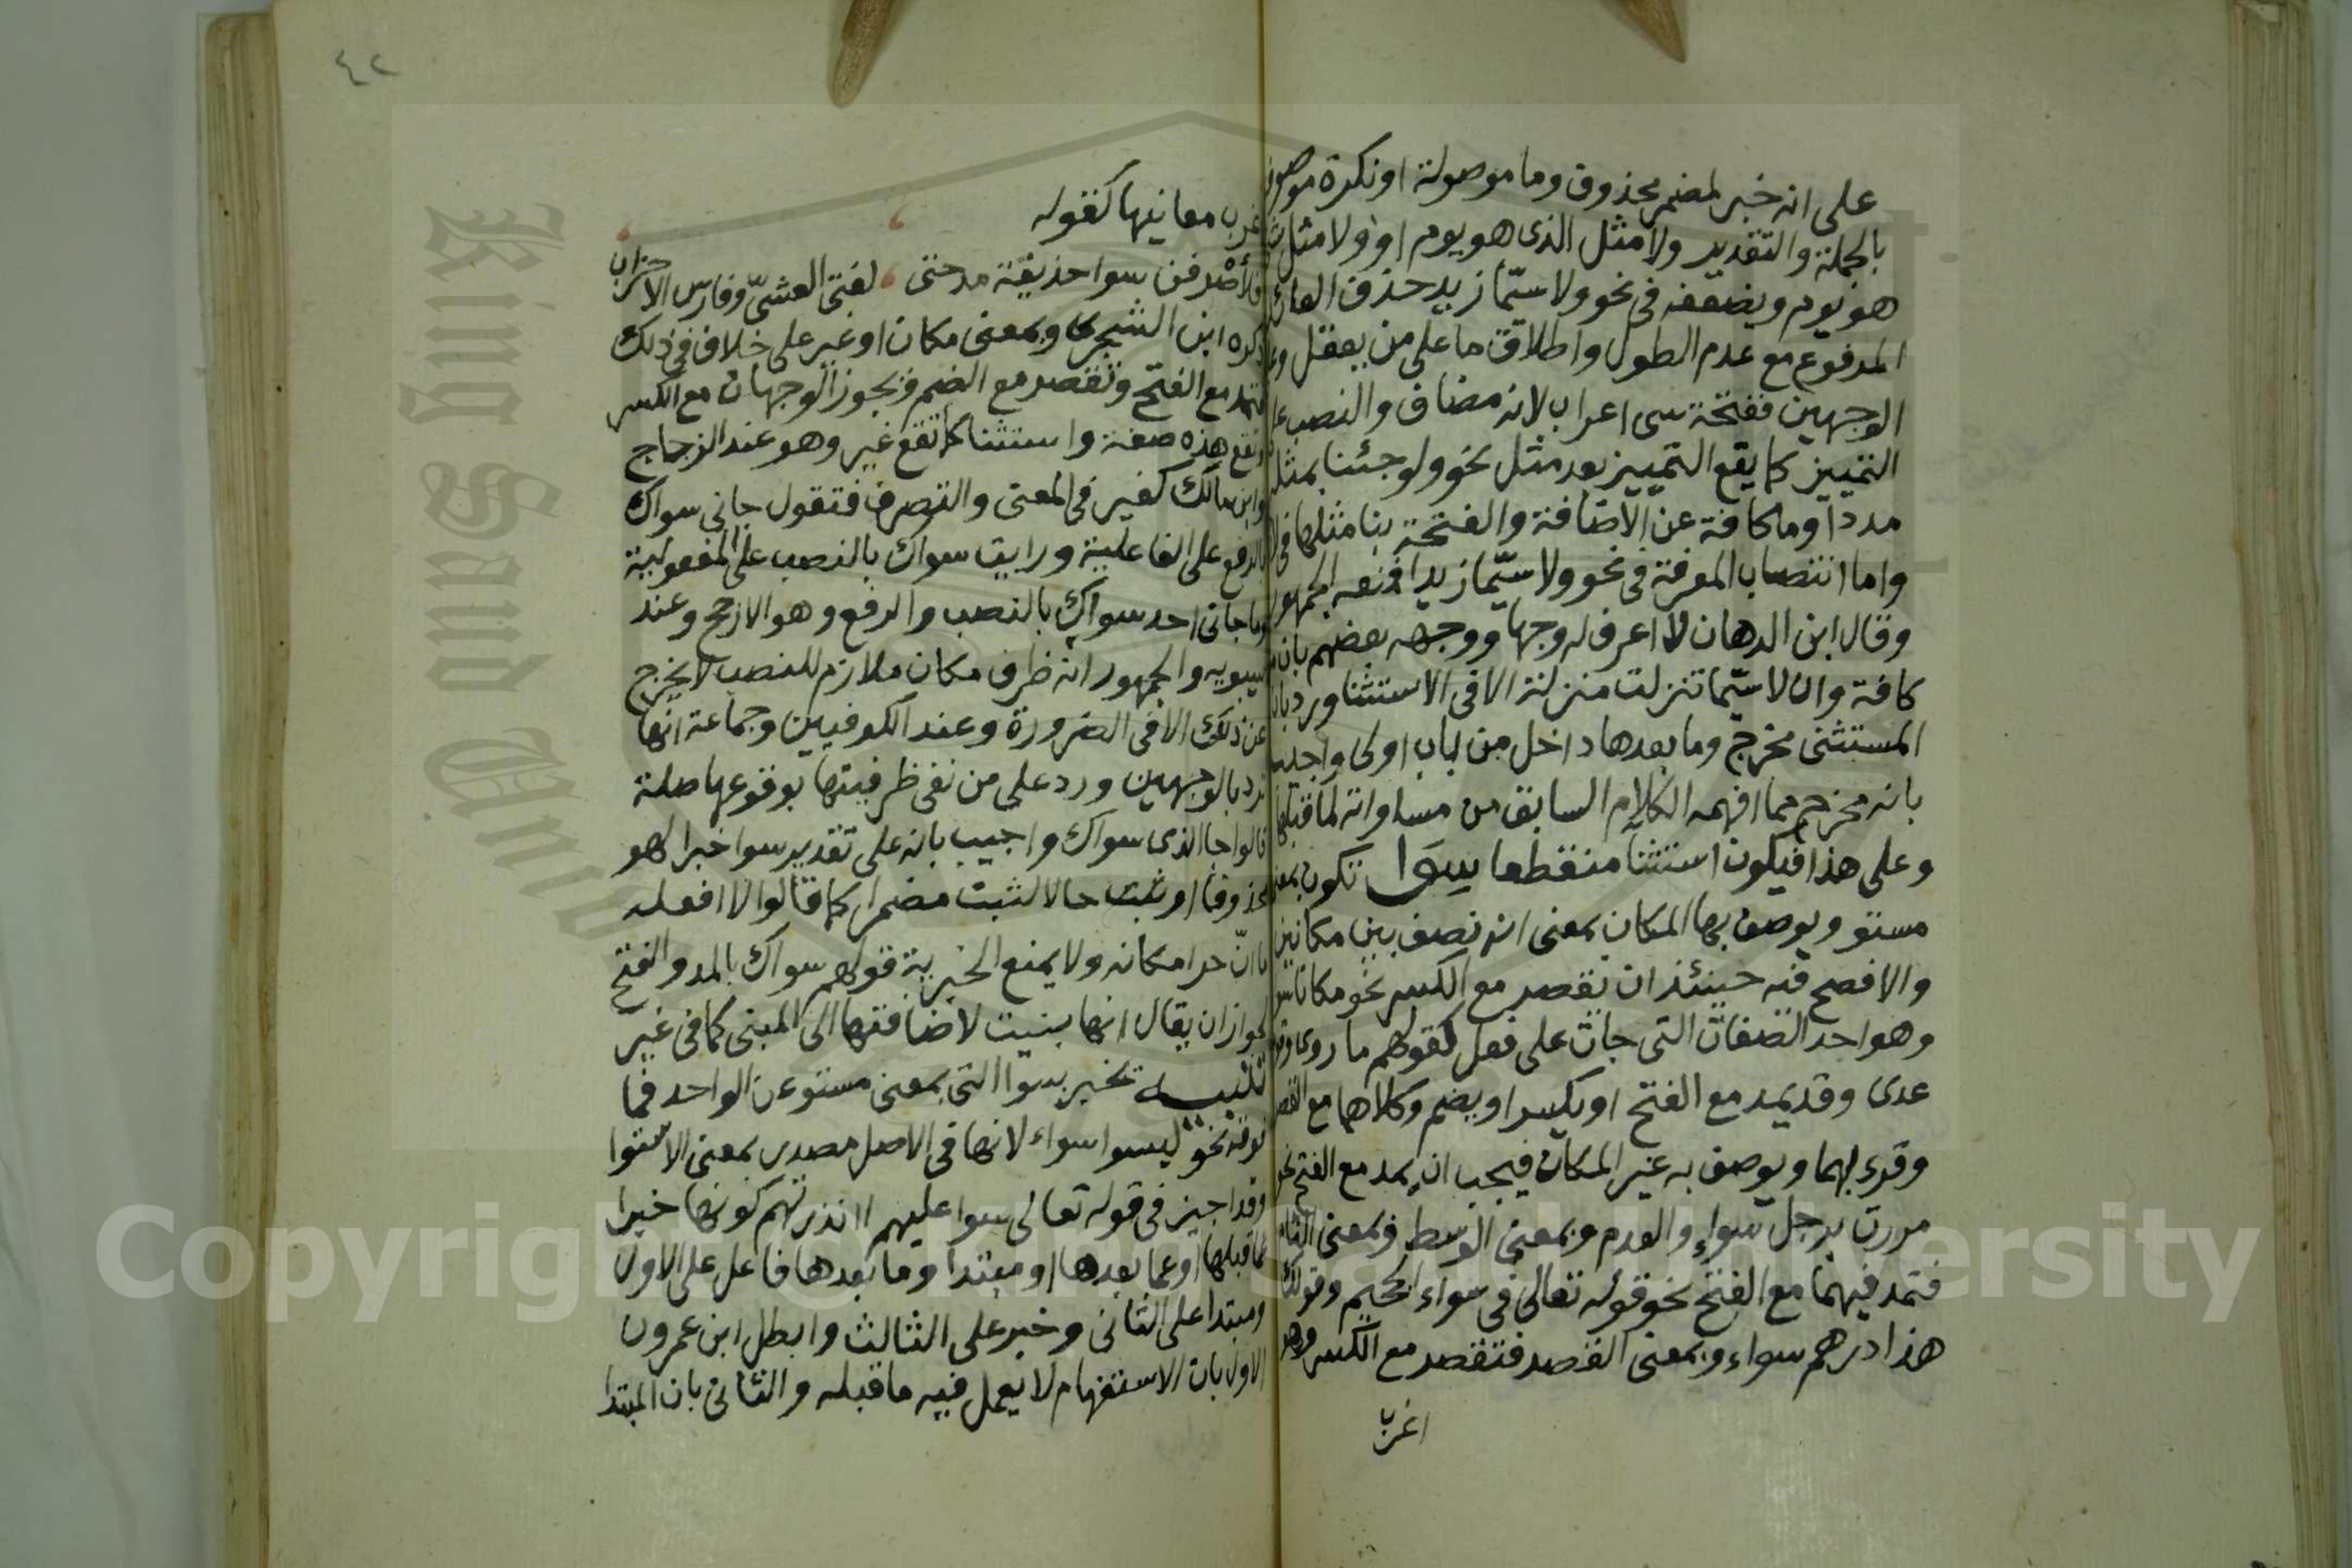 على انه خبر لمضمر محذوف وما موصولة او نكرة موصوفة
بالجملة والتقدير ولا مثل الذى هو يوم او ولا مثل
هو يوم ويضعفه فى نحو ولا سيّما زيد حذف العائد
المرفوع مع عدم الطول واطلاق ما على من يعقل
الوجهين ففتحة سى اعراب لانه مضاف والنصب على
التمييز كما يقع التمييز بعد مثل نحو ولو جئنا بمثله
مددا وما كافة عن الاضافة والفتحة بنا مثلها فى
واما انتصاب المعرفة فى نحو ولا سيّما زيدا فمنعه الجمهور
وقال ابن الدهان لا اعرف له وجها ووجهه بعضهم بان
كافة وان لا سيّما تنزلت منزلة الا فى الاستثنا ورد بان
المستثنى مخرج وما بعدها داخل من باب اولى واجيب
بانه مخرج مما افهمه الكلام السابق من مساواته لما قبلها
وعلى هذا فيكون استثنا منقطعا سوا تكون بمعنى
مستو ويوصف بها المكان بمعنى انه نصف بين مكانين
والافصح فيه حينئذ ان تقصر مع الكسر نحو مكانا سوى
وهو احد الصفات التى جات على فعل كقولهم ما روى وقوم
عدى وقد يمد مع الفتح او يكسر او يضم وكلاهما مع القصر
وقرء بهما ويوصف به غير المكان فيجب ان يمد مع الفتح نحو
مررت برجل سواء والعدم وبمعنى الوسط وبمعنى التام
فتمد فيهما مع الفتح نحو قوله تعالى فى سواء الجحيم وقولك
هذا درهم سواء وبمعنى القصد فتقصر مع الكسر وهو
اغرب
٤٢
غرب معانيها كقوله
فلأصرفن سوا حذيفة مدحتى لفتى العشىّ وفارس الاحزاب
ذكره ابن الشجرى وبمعنى مكان او غير على خلاف فى ذلك
فتمد مع الفتح وتقصر مع الضم ويجوز الوجهان مع الكسر
وتقع هذه صفة واستثنا كما تقع غير وهو عند الزجاج
وابن مالك كغير فى المعنى والتصرف فتقول جانى سواك
بالرفع على الفاعلية ورايت سواك بالنصب على المفعولية
وما جانى احد سواك بالنصب والرفع وهو الارجح وعند
سيبويه والجمهور انه ظرف مكان ملازم للنصب لا يخرج
عن ذلك الا فى الضرورة وعند الكوفيين وجماعة انها
ترد بالوجهين ورد على من نفى ظرفيتها بوقوعها صلة
قالوا جا الذى سواك واجيب بانه على تقدير سوا خبرا لهو
محذوفا او ثبت حالا لثبت مضمرا كما قالوا لا افعله
ما انّ حرا مكانه ولا يمنع الخبرية قولهم سواك بالمد والفتح
لجواز ان يقال انها بنيت لاضافتها الى المبنى كما فى غير
تنبيه تخبر بسوا التى بمعنى مستو عن الواحد فما
فوقه نحو ليسوا سواء لانها فى الاصل مصدر بمعنى الاستوا
وقد اجيز فى قوله تعالى سوا عليهم اانذرتهم كونها خبرا
عما قبلها او عما بعدها او مبتدا وما بعدها فاعل على الاول
ومبتدا على الثانى وخبر على الثالث وابطل ابن عمرون
الاول بان الاستفهام لا يعمل فيه ما قبله والثانى بان المبتدا
King Saud University
Copyright © King Saud University